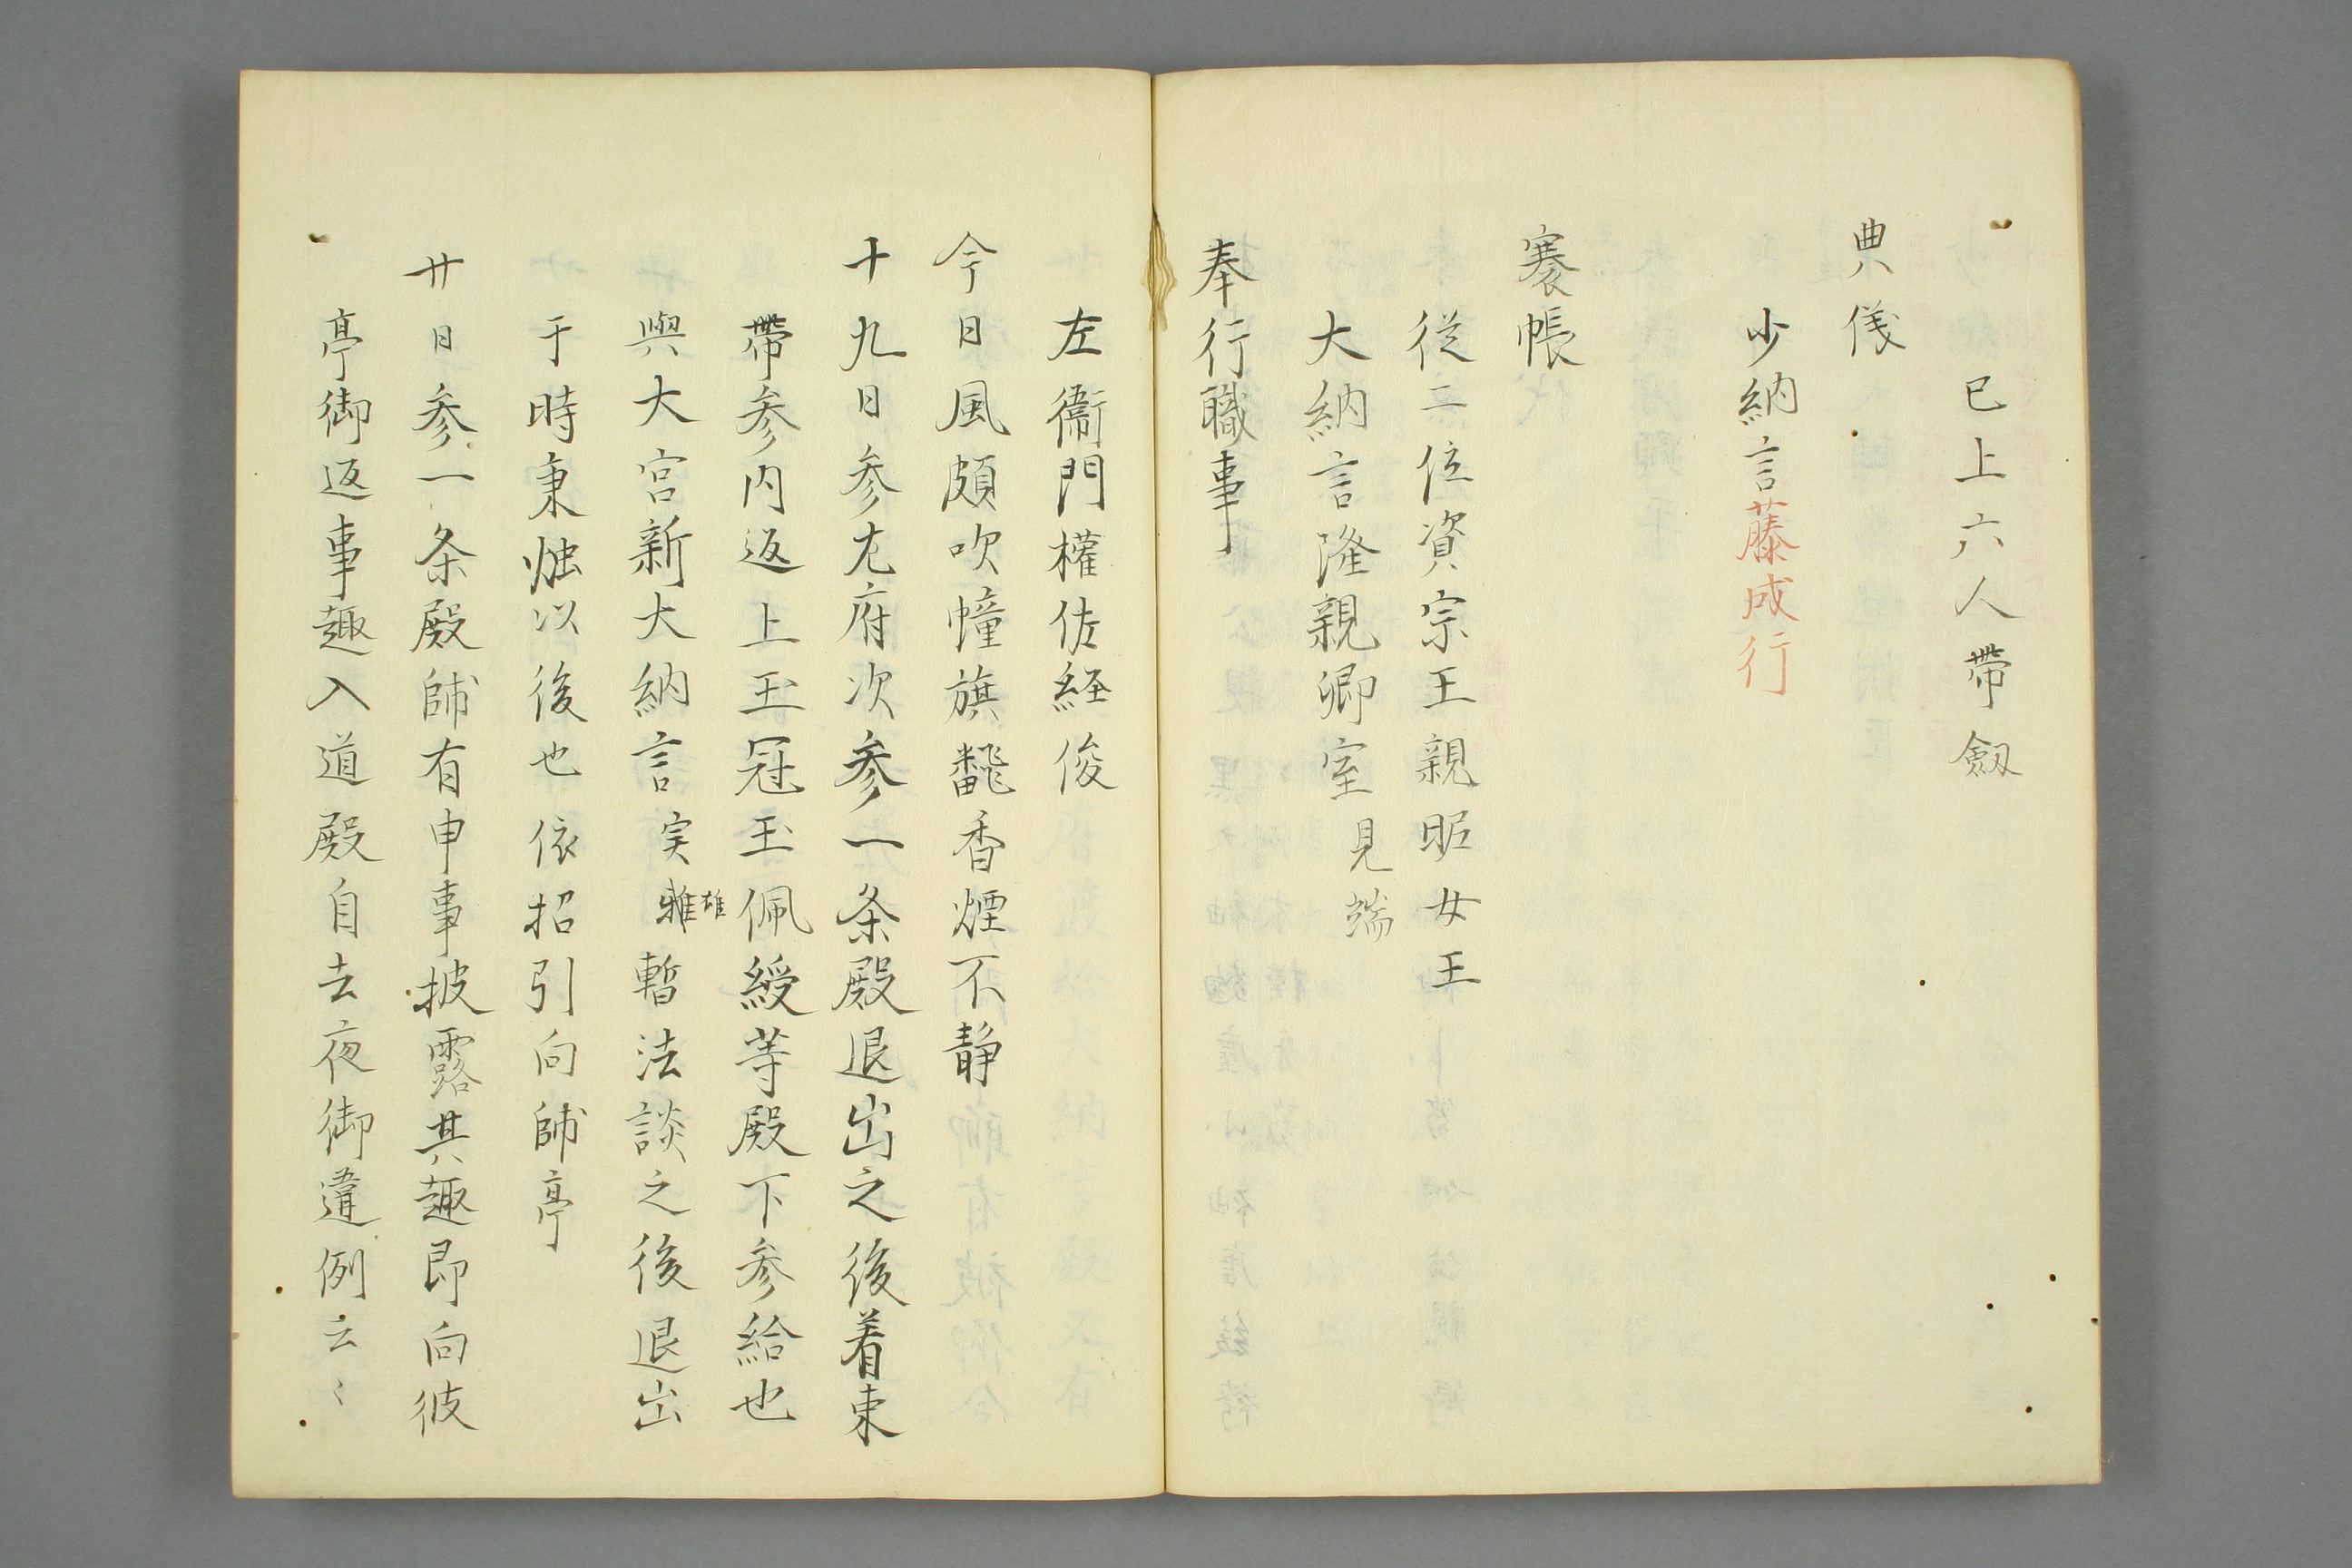 已上六人帯劔
典儀
少納言藤成行
褰帳
従二位資宗王親昵女王
大納言隆親卿室見端
奉行職事
左衞門權佐経俊
今日風頗吹幢旗飜香煙不静
十九日参左府次参一条殿退出之後着束
帶参内返上玉冠玉佩綬等殿下参給也
與大宮新大納言実雅雄暫法談之後退出
于時秉燭以後也依招引向師亭
廿日参一条殿師有申事披露其趣即向彼
亭御返事趣入道殿自去夜御違例云〻